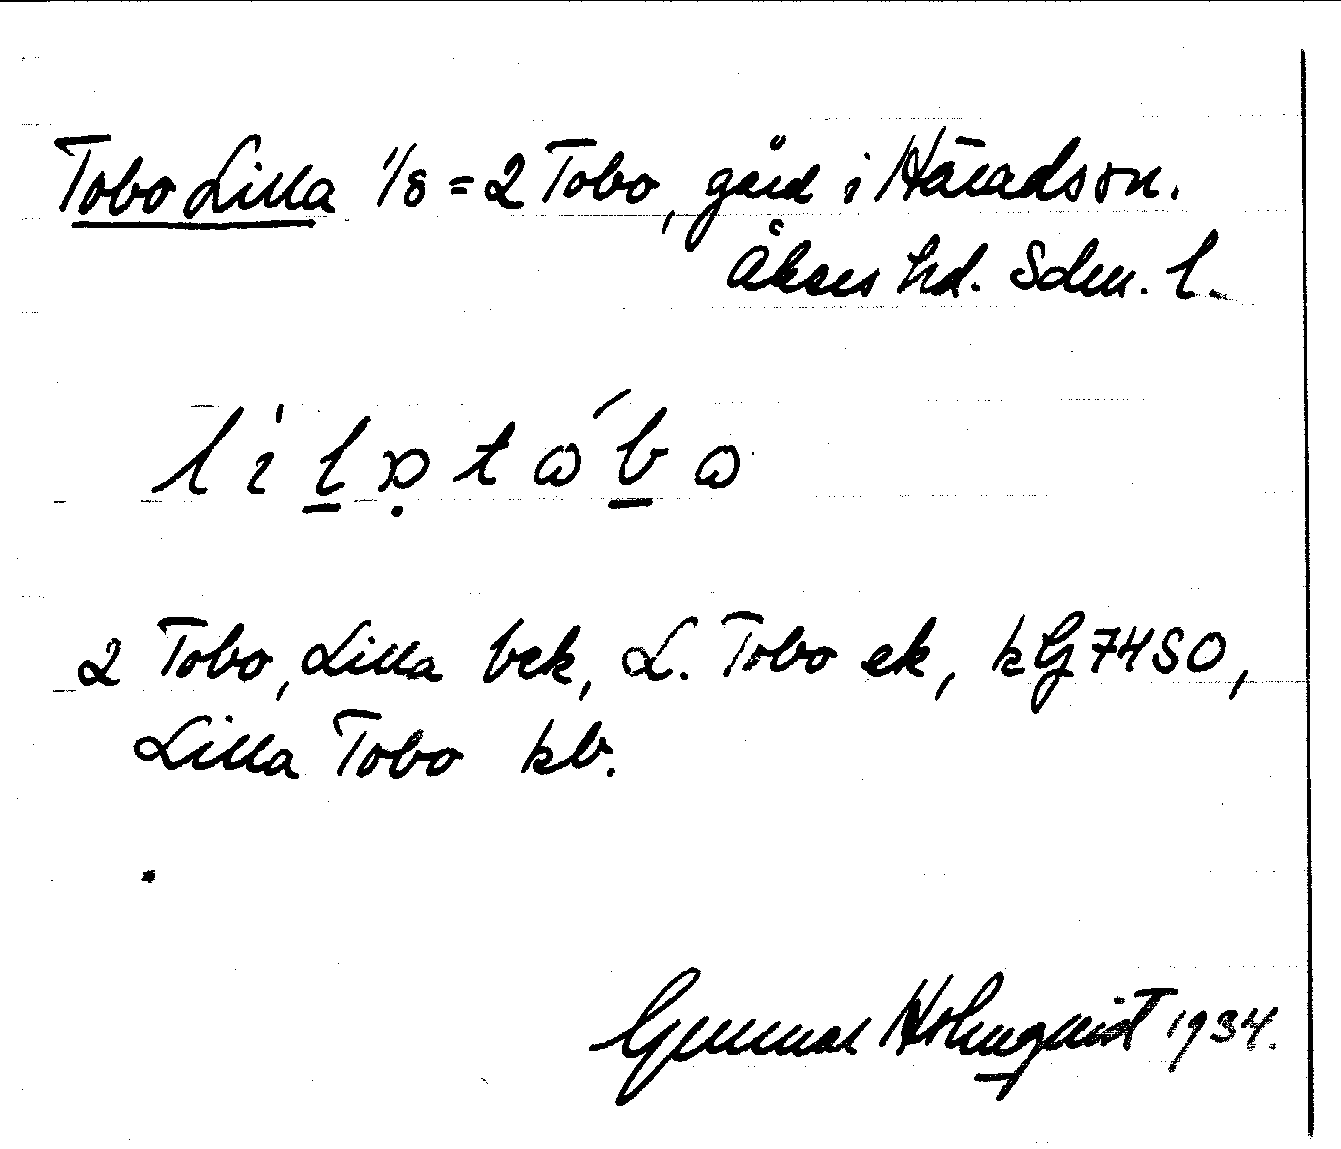 Tobo Lilla 1/8 = 2 Tobo, gård i Häradson.
Åkers hd. Sdm. l.
2 Tobo, Lilla bek, L. Tobo ek, kG 74 SO,
Lilla Tobo kb.
Gunnar Holmquist 1934.